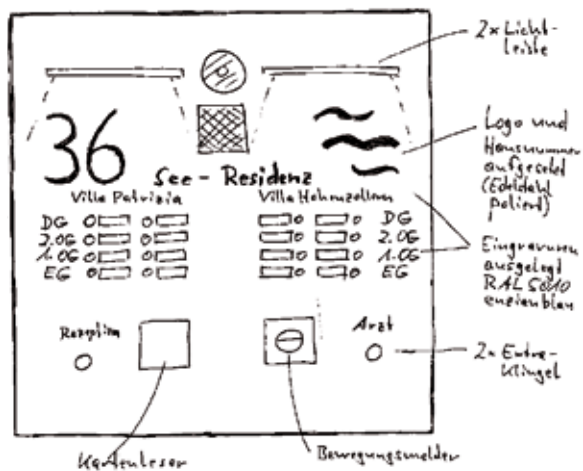 2x Licht-
leiste
36
Logo und
Hausnummer
aufgesetzt
(Edelstahl
poliert)
See-Residenz
Villa Patrizia
Villa Hohenzollern
DG
DG
2.OG
2.OG
1.OG
1.OG
EG
EG
Eingravuren
ausgelegt
RAL 5010
enzianblau
Rezeption
Arzt
2x Extra-
Klingel
Kartenleser
Bewegungsmelder